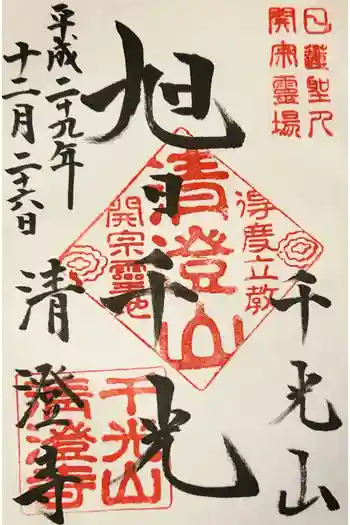 日蓮聖人
開宗霊場
千光山
旭日千光
清澄山
得度立教
開宗霊地
平成二十九年
十二月二十六日
清澄寺
千光山
清澄寺